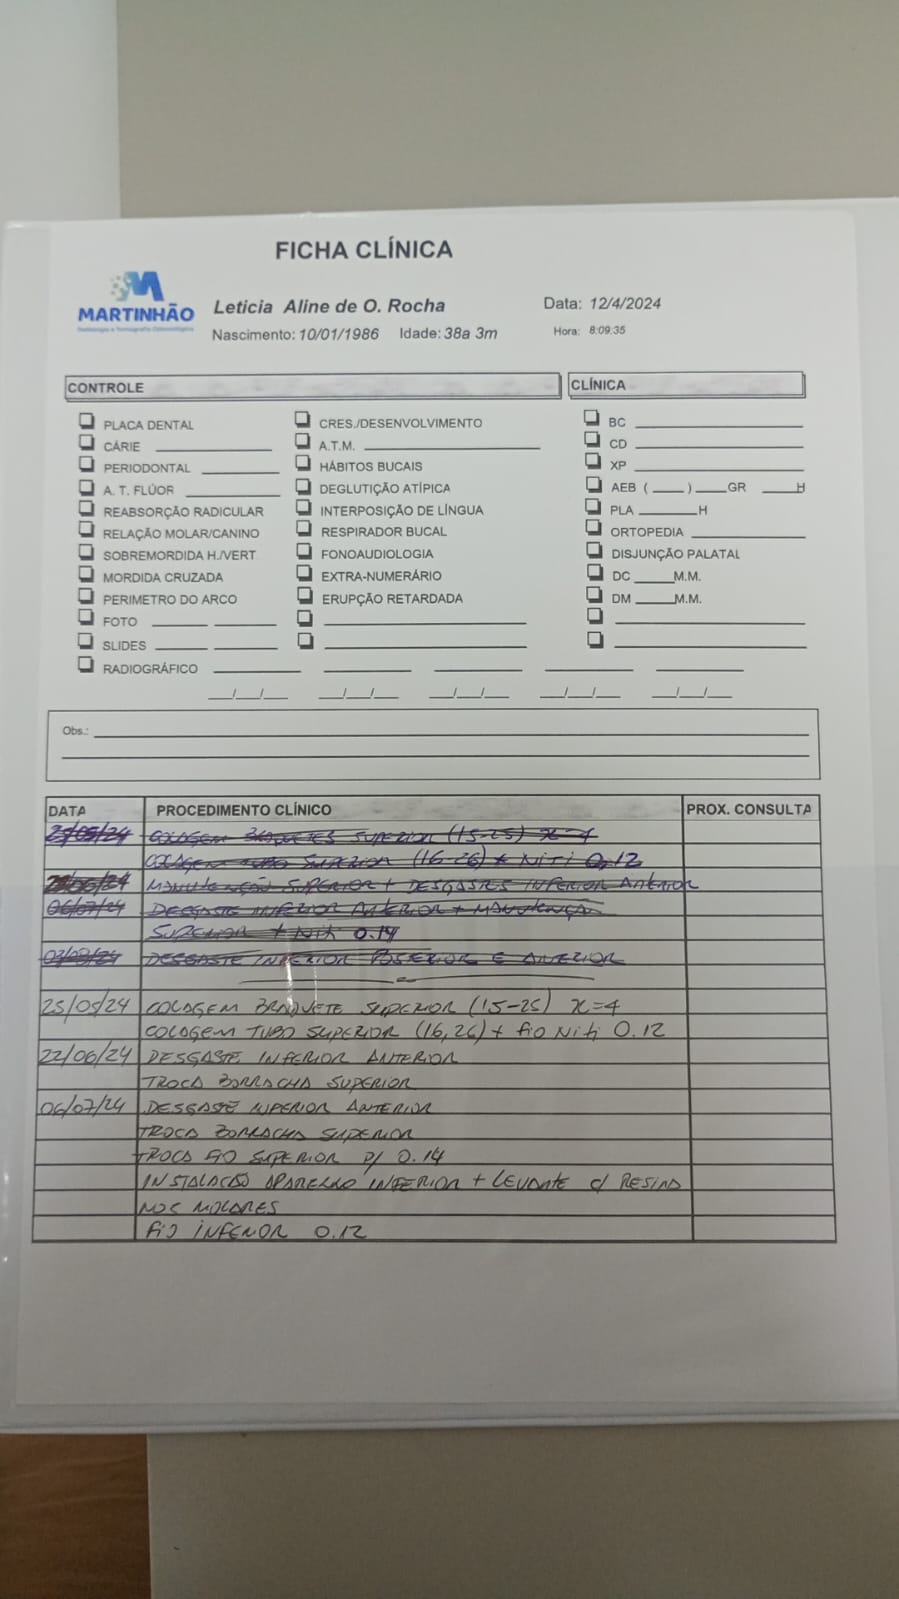 FICHA CLÍNICA
MARTINHÃO
Radiologia e Tomografia Odontológica
Leticia Aline de O. Rocha
Data: 12/4/2024
Nascimento: 10/01/1986 Idade: 38a 3m
Hora: 8:09:35
CONTROLE
CLÍNICA
PLACA DENTAL
CÁRIE
PERIODONTAL
A. T. FLÚOR
REABSORÇÃO RADICULAR
RELAÇÃO MOLAR/CANINO
SOBREMORDIDA H./VERT
MORDIDA CRUZADA
PERIMETRO DO ARCO
FOTO
SLIDES
RADIOGRÁFICO
CRES./DESENVOLVIMENTO
A.T.M.
HÁBITOS BUCAIS
DEGLUTIÇÃO ATÍPICA
INTERPOSIÇÃO DE LÍNGUA
RESPIRADOR BUCAL
FONOAUDIOLOGIA
EXTRA-NUMERÁRIO
ERUPÇÃO RETARDADA
BC
CD
XP
AEB ( ) GR H
PLA H
ORTOPEDIA
DISJUNÇÃO PALATAL
DC M.M.
DM M.M.
Obs.:
DATA PROCEDIMENTO CLÍNICO PROX. CONSULTA
25/05/24 COLAGEM BRAQUETES SUPERIOR (15-25) X=4
COLAGEM TUBO SUPERIOR (16-26) + NiTi 0,12
22/06/24 MANUTENÇÃO SUPERIOR + DESGASTES INFERIOR ANTERIOR
06/07/24 DESGASTE INFERIOR ANTERIOR + MANUTENÇÃO
SUPERIOR + Niti 0.14
03/08/24 DESGASTE INFERIOR POSTERIOR E ANTERIOR
25/05/24 COLAGEM BRAQUETE SUPERIOR (15-25) X=4
COLAGEM TUBO SUPERIOR (16,26) + fio Niti 0.12
22/06/24 DESGASTE INFERIOR ANTERIOR
TROCA BORRACHA SUPERIOR
06/07/24 DESGASTE INFERIOR ANTERIOR
TROCA BORRACHA SUPERIOR
TROCA FIO SUPERIOR P/ 0.14
INSTALAÇÃO APARELHO INFERIOR + LEVANTE C/ RESINA
NOS MOLARES
FIO INFERIOR 0.12